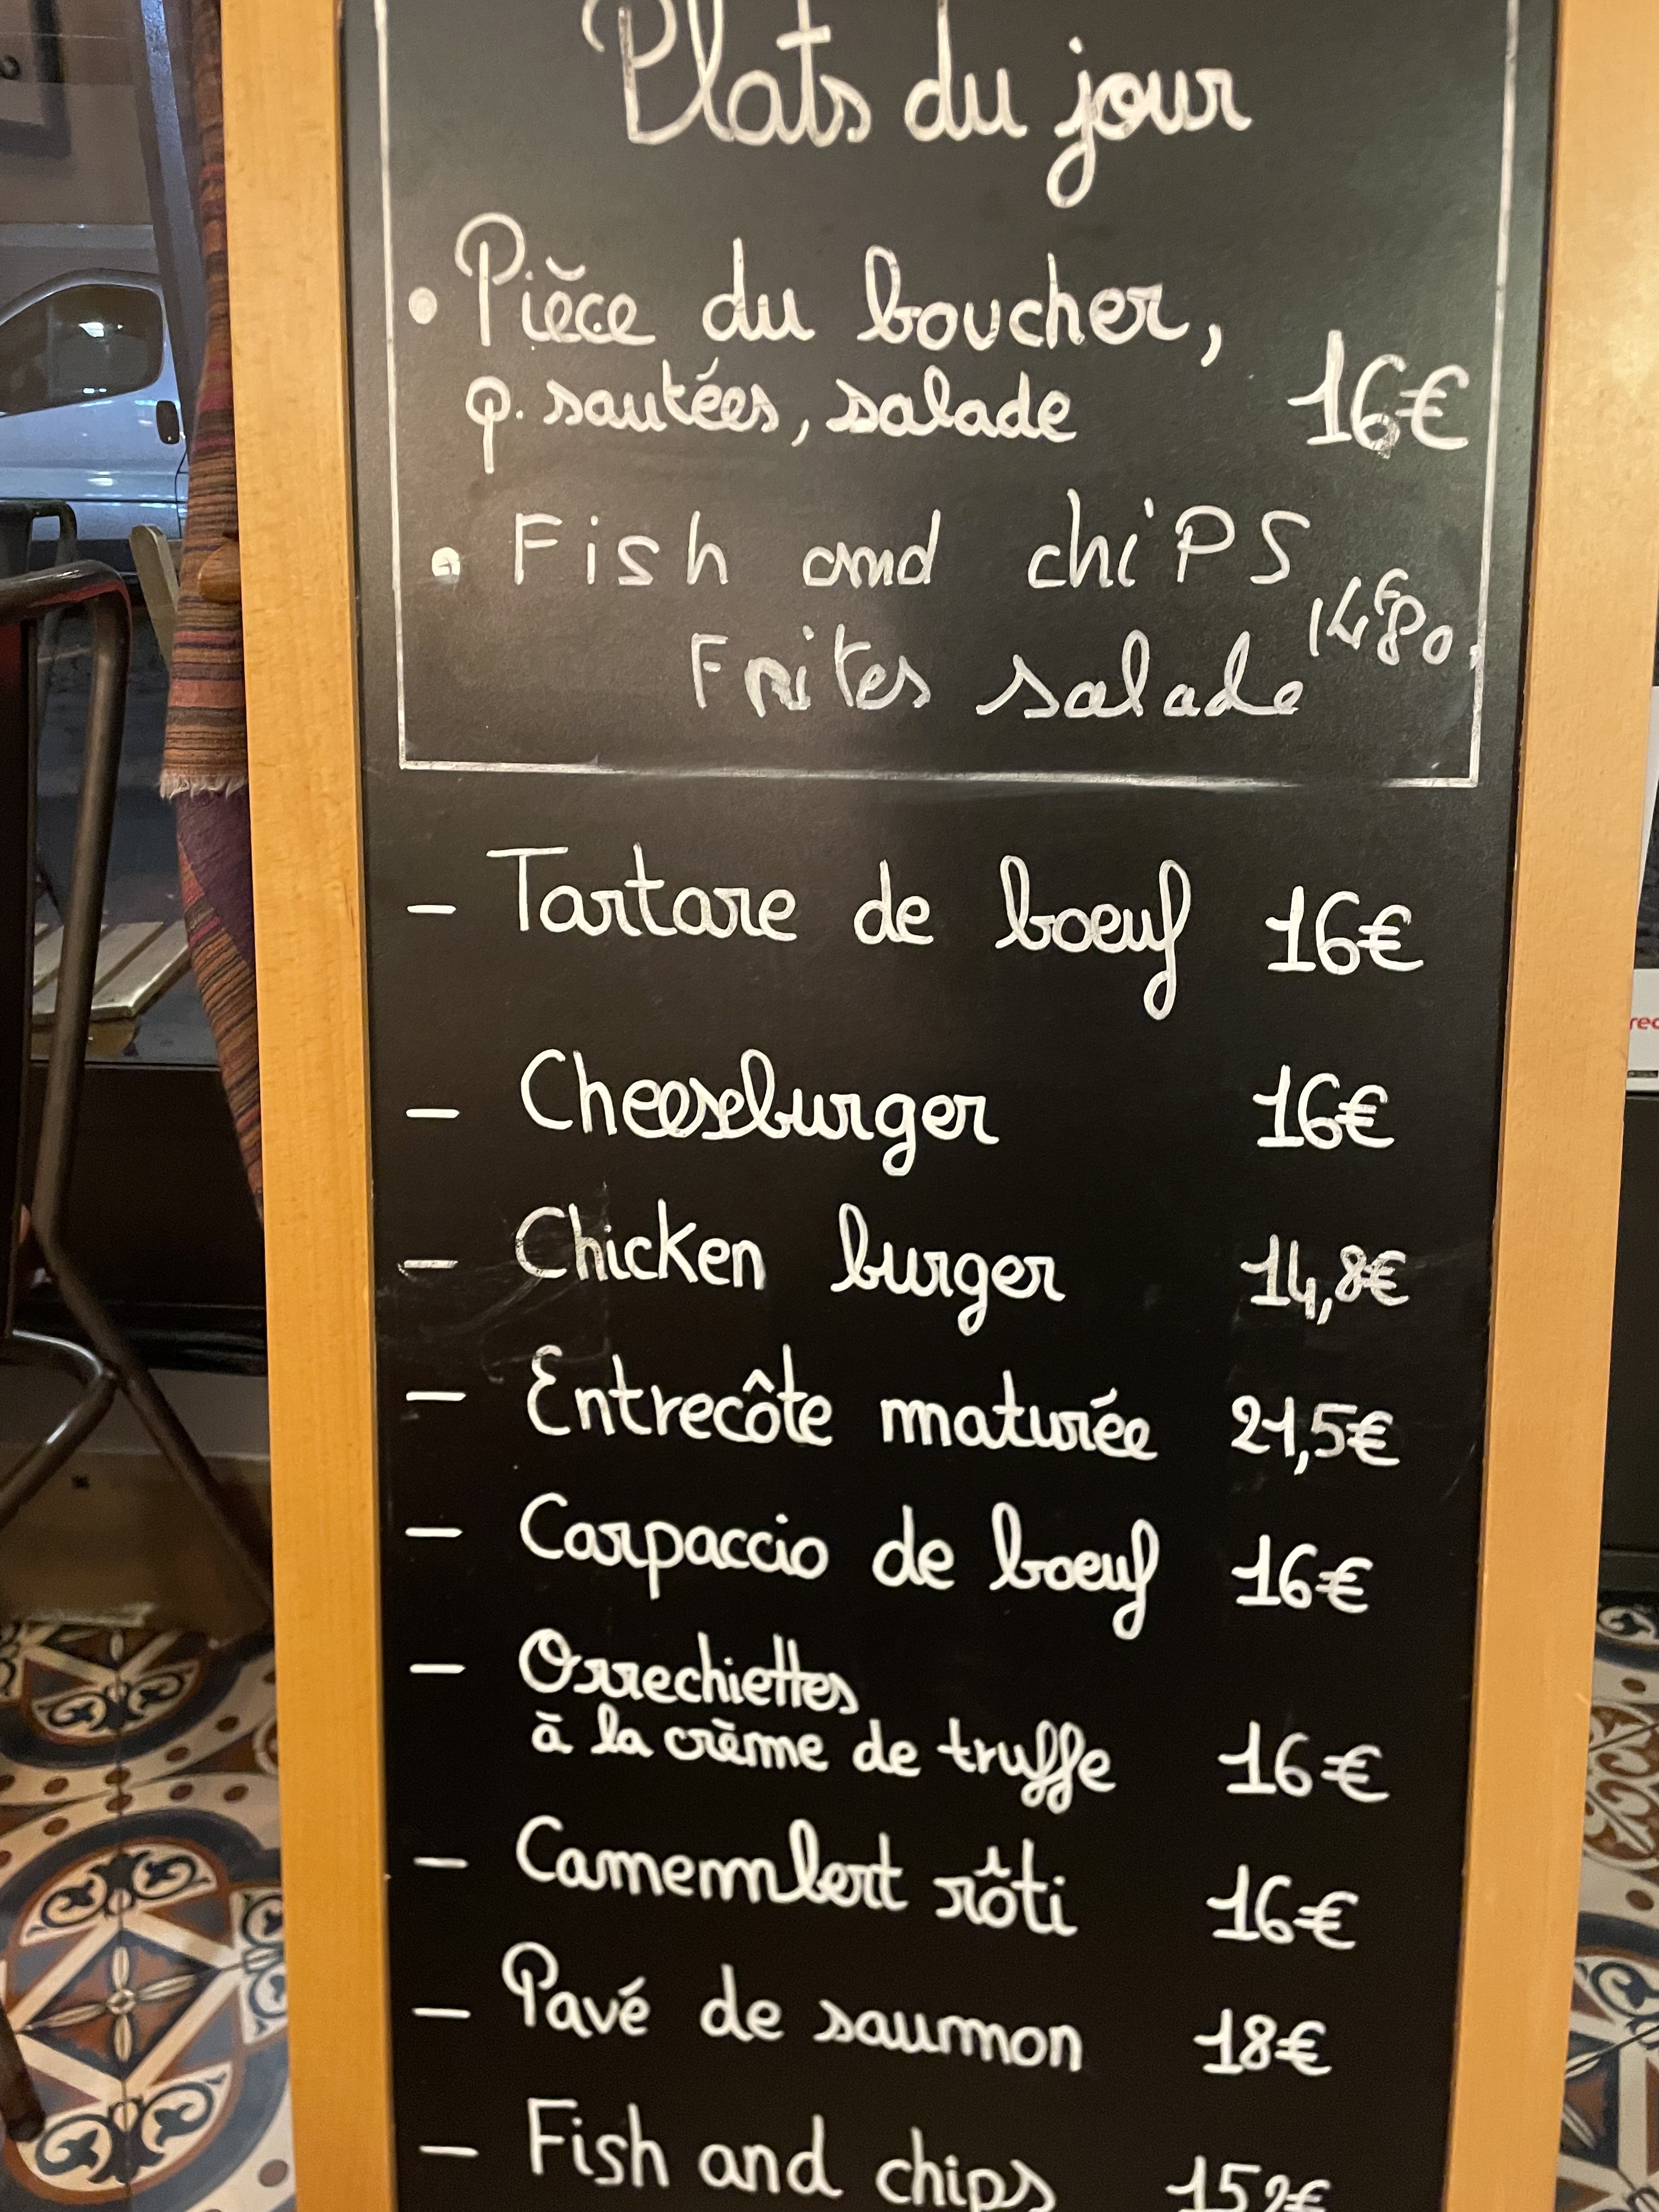 Plats du jour
• Pièce du boucher,
p. sautées, salade 16€
• Fish and chiPS
Frites salade 14€80
– Tartare de boeuf 16€
– Cheeseburger 16€
– Chicken burger 14,8€
– Entrecôte maturée 21,5€
– Carpaccio de boeuf 16€
– Orrechiettes
à la crème de truffe 16€
– Camembert rôti 16€
– Pavé de saumon 18€
– Fish and chips